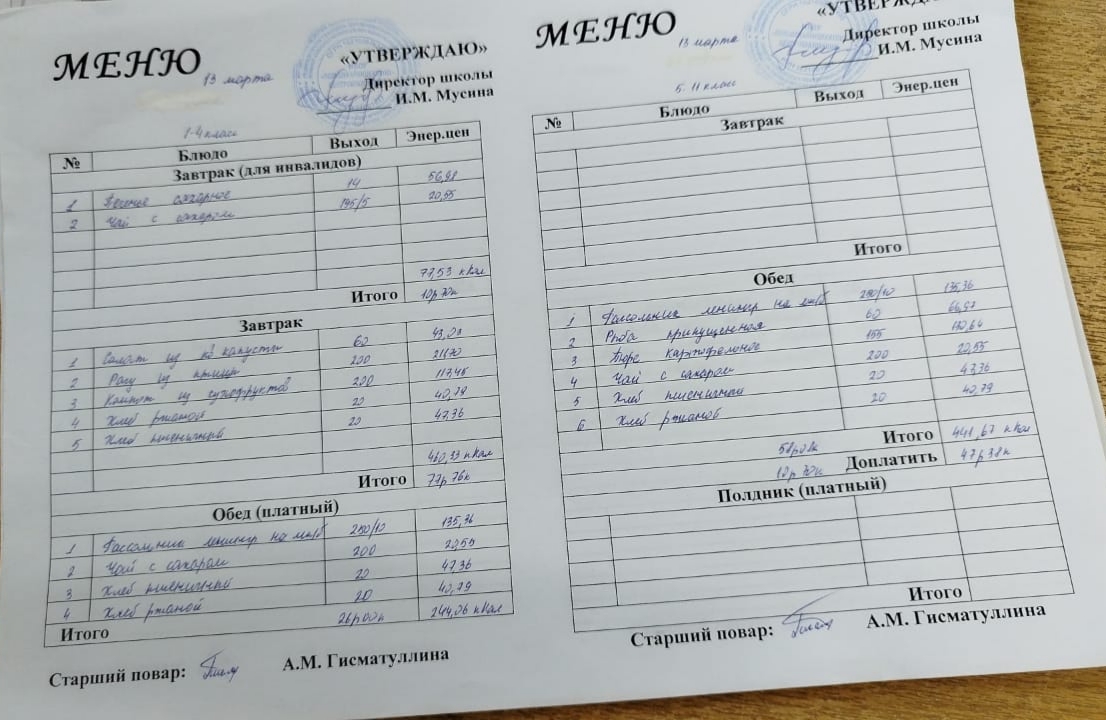 МЕНЮ
13 марта
«УТВЕРЖДАЮ»
Директор школы
И.М. Мусина
1-4 класс
№ Блюдо Выход Энер.цен
Завтрак (для инвалидов)
1 Печенье сахарное 14 56,98
2 Чай с сахаром 195/5 20,55
77,53 кКал
Итого 10р 70к
Завтрак
1 Салат из капусты 60
2 Рагу из птицы 200
3 Компот из сухофруктов 200 117,45
4 Хлеб ржаной 20 40,79
5 Хлеб пшеничный 20 47,36
460,33 кКал
Итого 77р 76к
Обед (платный)
1 Рассольник ленингр на мк/б 250/10 135,36
2 Чай с сахаром 200 20,55
3 Хлеб пшеничный 20 47,36
4 Хлеб ржаной 20 40,79
Итого 26р00к 244,06 кКал
Старший повар: А.М. Гисматуллина
МЕНЮ
13 марта
«УТВЕРЖДАЮ»
Директор школы
И.М. Мусина
5-11 класс
№ Блюдо Выход Энер.цен
Завтрак
Итого
Обед
1 Рассольник ленингр на мк/б 250/10 135,36
2 Рыба припущенная 60
3 Пюре картофельное 155
4 Чай с сахаром 200 20,55
5 Хлеб пшеничный 20 47,36
6 Хлеб ржаной 20 40,79
58р08к Итого 441,67 кКал
10р 70к Доплатить 47р38к
Полдник (платный)
Итого
Старший повар: А.М. Гисматуллина